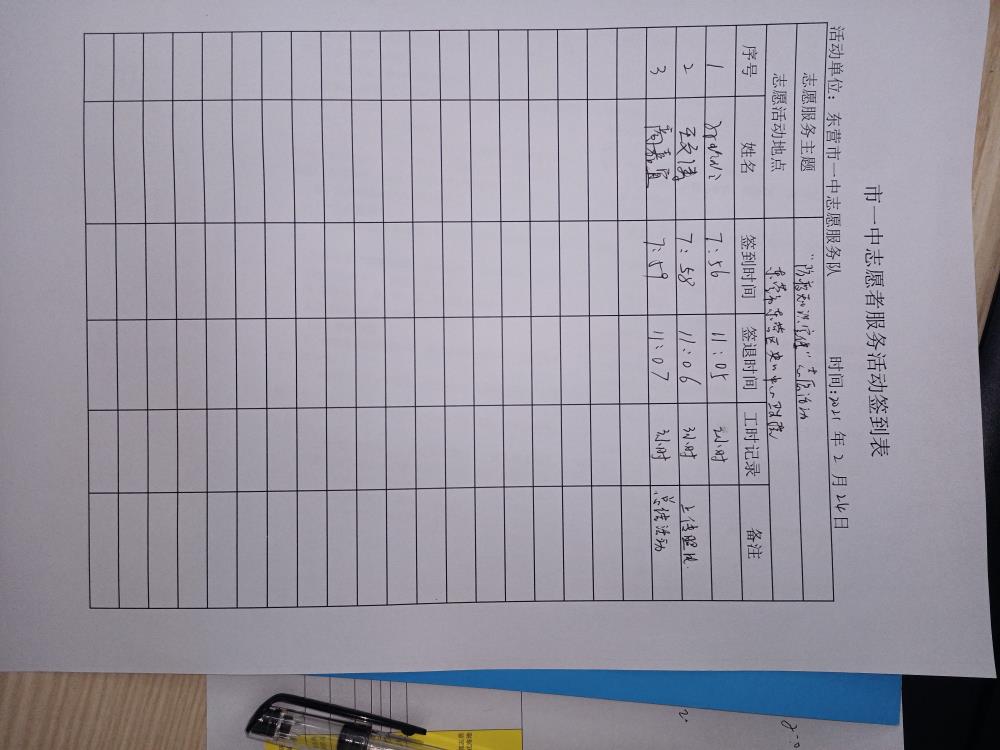 市一中志愿者服务活动签到表
活动单位：东营市一中志愿服务队 时间：2021年2月24日
志愿服务主题 "防毒知识宣传"志愿活动
志愿活动地点 东营市东营区
序号 姓名 签到时间 签退时间 工时记录 备注
1 7:56 11:05 3小时
2 7:58 11:06 3小时 上传照片
3 7:59 11:07 3小时 总结活动